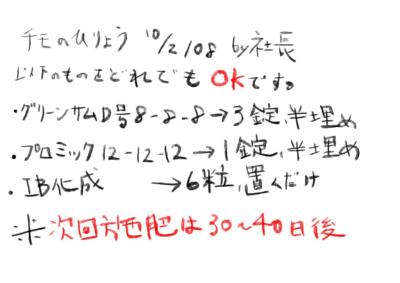 チモのひりょう 10/2/08 by社長
以下のものをどれでもOKです。
・グリーンサムD号8-8-8→3錠、半埋め
・プロミック12-12-12→1錠、半埋め
・IB化成 →6粒、置くだけ
※次回施肥は30~40日後